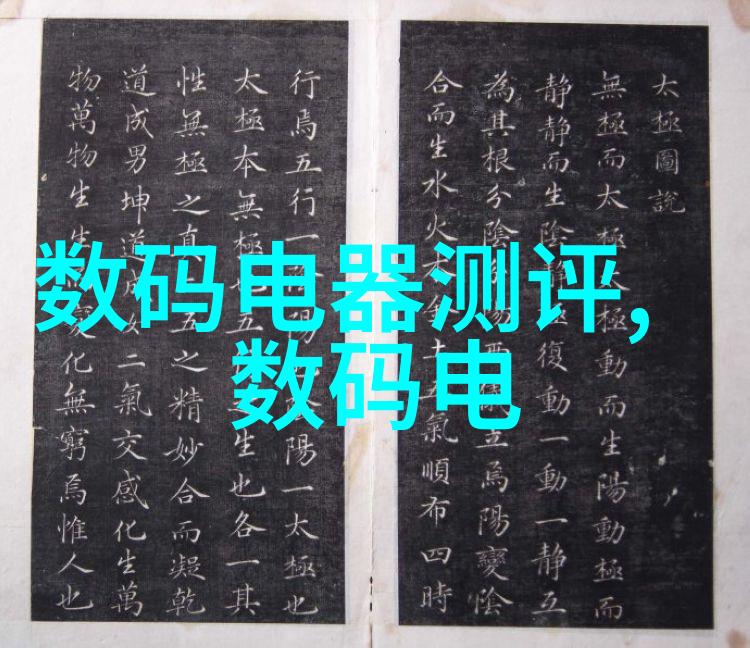 数码电器测评,
数码电
太極圖說
無極而太極太極動而生陽動極而
静静而生陰静極復動一動一静互
為其根分陰分陽兩儀立焉陽變陰
合而生水火木金土五氣順布四時
行焉五行一陽陰陽一太極也
太極本無極也五生也各一其
性無極之真五之精妙合而凝乾
道成男坤道成女二氣交感化生萬
物萬物生生變化無窮焉惟人也